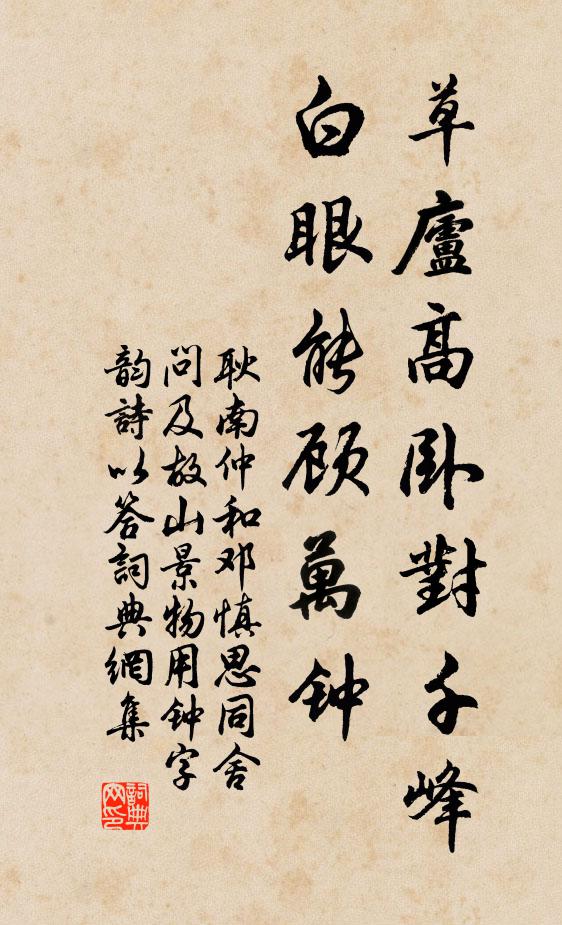 草廬高卧對千峰
白眼能顾萬钟
耿南仲和邓慎思同舍
問及故山景物用钟字
韵詩以答詞典網集
詞典
网印